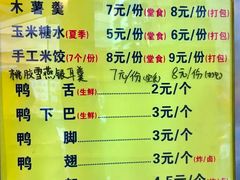 木薯羹 7元/份(堂食) 8元/份(打包)
玉米糖水(夏季) 5元/份(堂食) 6元/份(打包)
手工米饺(7个/份) 8元/份(堂食) 9元/份(打包)
桃胶雪燕银耳羹 7元/份(堂食) 8元/份(打包)
鸭舌(生鲜) 2元/个
鸭下巴(生鲜) 3元/个
鸭脚 3元/个
鸭翅 3元/个(炸/卤)